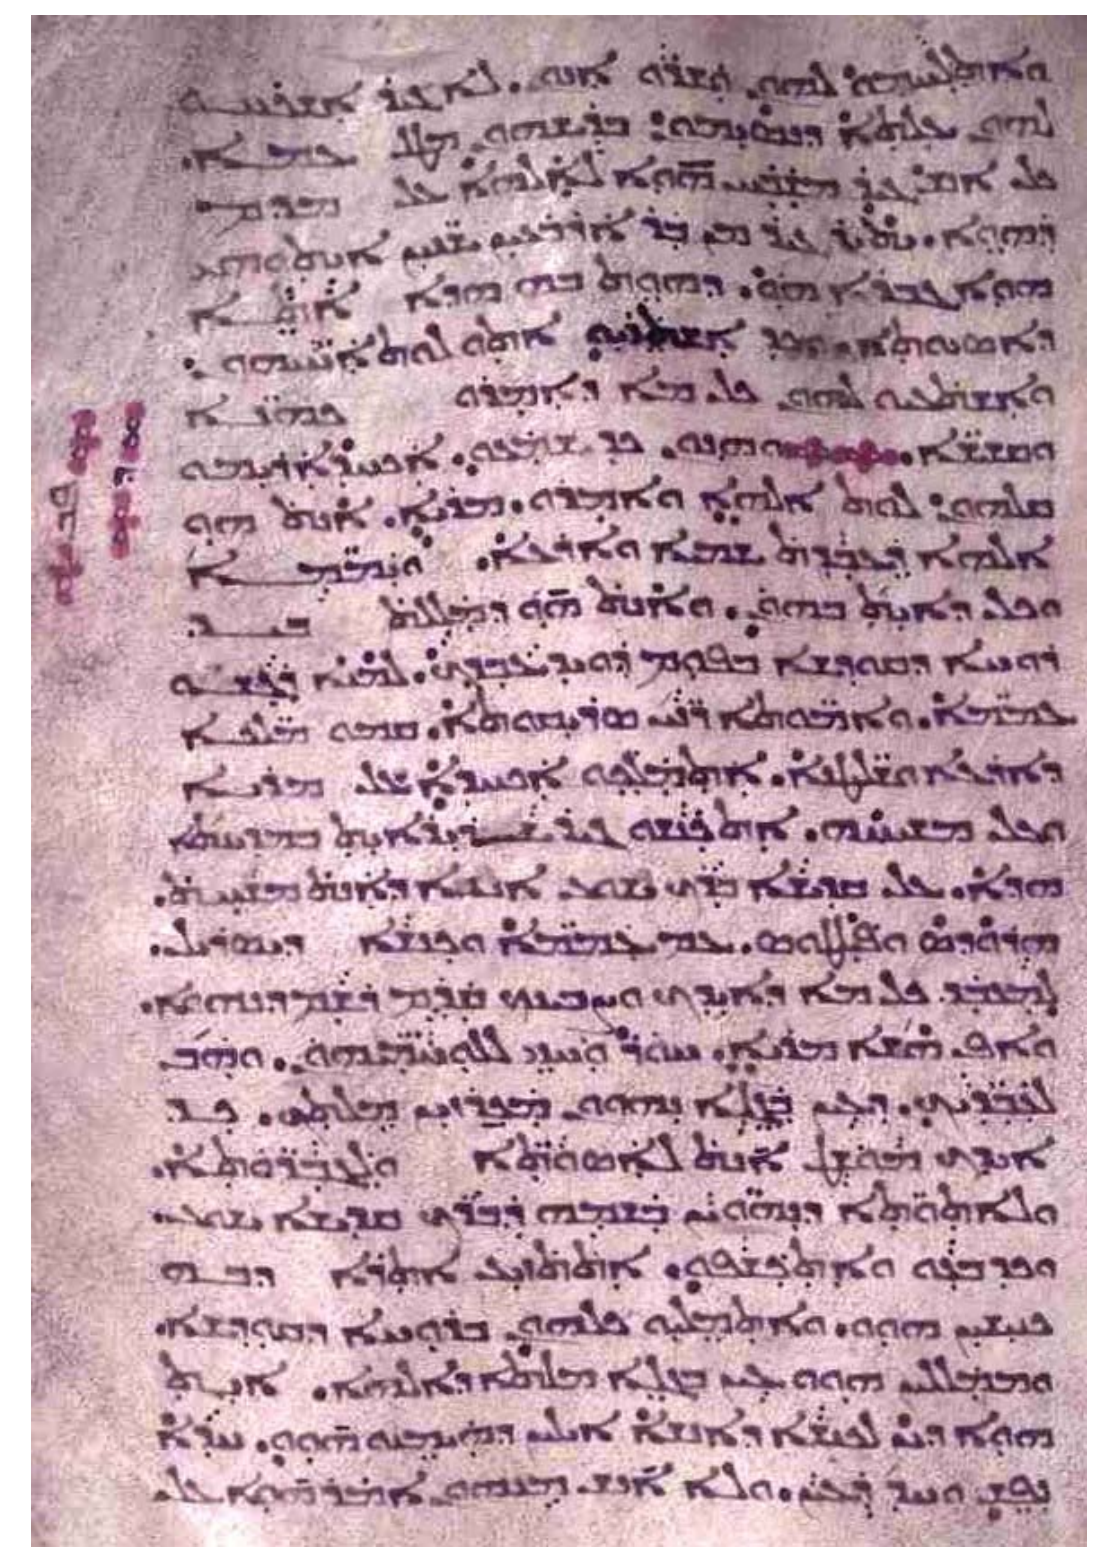 ܘܐܬܠܚܡܘ ܠܗܘܢ. ܘܫܪܘ ܐܢܘܢ. ܠܐ ܓܝܪ ܐܫܟܚܘ
ܠܗܘܢ ܥܠܬܐ ܕܢܣܝܡܘܢ: ܒܪܫܗܘܢ ܡܛܠ ܥܡܐ.
ܟܠ ܐܢܫ ܓܝܪ ܡܫܒܚ ܗܘܐ ܠܐܠܗܐ ܥܠ ܡܕܡ
ܕܗܘܐ. ܝܬܝܪ ܓܝܪ ܡܢ ܒܪ ܐܪܒܥܝܢ ܫܢܝܢ ܐܝܬܘܗܝ
ܗܘܐ ܓܒܪܐ ܗܘ. ܕܗܘܬ ܒܗ ܗܕܐ ܐܬܐ
ܕܐܣܝܘܬܐ. ܘܟܕ ܐܫܬܪܝܘ ܐܬܘ ܠܘܬ ܐܚܝܗܘܢ:
ܘܐܫܬܥܝܘ ܠܗܘܢ ܟܠ ܡܐ ܕܐܡܪܘ ܟܗܢܐ
ܘܩܫܝܫܐ. ܘܗܢܘܢ ܟܕ ܫܡܥܘ. ܐܟܚܕܐ ܐܪܝܡܘ
ܩܠܗܘܢ ܠܘܬ ܐܠܗܐ ܘܐܡܪܘ. ܡܪܝܐ. ܐܢܬ ܗܘ
ܐܠܗܐ ܕܥܒܕܬ ܫܡܝܐ ܘܐܪܥܐ. ܘܝܡܡܐ
ܘܟܠ ܕܐܝܬ ܒܗܘܢ. ܘܐܢܬ ܗܘ ܕܡܠܠܬ ܒܝܕ
ܪܘܚܐ ܕܩܘܕܫܐ ܒܦܘܡ ܕܘܝܕ ܥܒܕܟ. ܠܡܢܐ ܪܓܫܘ
ܥܡܡܐ. ܘܐܡܘܬܐ ܪܢܝ ܣܪܝܩܘܬܐ. ܩܡܘ ܡܠܟܐ
ܕܐܪܥܐ ܘܫܠܝܛܢܐ. ܘܐܬܡܠܟܘ ܐܟܚܕܐ ܥܠ ܡܪܝܐ
ܘܥܠ ܡܫܝܚܗ. ܐܬܟܢܫܘ ܓܝܪ ܫܪܝܪܐܝܬ ܒܡܕܝܢܬܐ
ܗܕܐ. ܥܠ ܩܕܝܫܐ ܒܪܟ ܝܫܘܥ ܐܝܢܐ ܕܐܢܬ ܡܫܚܬ.
ܗܪܘܕܣ ܘܦܝܠܛܘܣ. ܥܡ ܥܡܡܐ ܘܟܢܫܐ ܕܝܣܪܝܠ.
ܠܡܥܒܕ ܟܠ ܡܐ ܕܐܝܕܟ ܘܨܒܝܢܟ ܩܕܡ ܪܫܡ ܕܢܗܘܐ.
ܘܐܦ ܗܫܐ ܡܪܝܐ. ܚܘܪ ܘܚܙܝ ܠܠܘܚܡܝܗܘܢ. ܘܗܒ
ܠܥܒܕܝܟ. ܕܥܝܢ ܒܓܠܐ ܢܗܘܘܢ ܡܟܪܙܝܢ ܡܠܬܟ. ܟܕ
ܐܝܕܟ ܡܘܫܛ ܐܢܬ ܠܐܣܘܬܐ ܘܠܓܒܪܘܬܐ.
ܘܠܐܬܘܬܐ ܕܢܗܘܝܢ ܒܫܡܗ ܕܒܪܟ ܩܕܝܫܐ ܝܫܘܥ.
ܘܟܕ ܒܥܘ ܘܐܬܟܫܦܘ. ܐܬܬܙܝܥ ܐܬܪܐ ܕܒܗ
ܟܢܝܫܝܢ ܗܘܘ. ܘܐܬܡܠܝܘ ܟܠܗܘܢ ܪܘܚܐ ܕܩܘܕܫܐ.
ܘܡܡܠܠܝܢ ܗܘܘ ܥܝܢ ܒܓܠܐ ܡܠܬܐ ܕܐܠܗܐ. ܐܝܬ
ܗܘܐ ܕܝܢ ܠܟܢܫܐ ܕܐܢܫܐ ܐܝܠܝܢ ܕܗܝܡܢܘ ܗܘܘ. ܚܕܐ
ܢܦܫ ܘܚܕ ܪܥܝܢ. ܘܠܐ ܐܢܫ ܡܢܗܘܢ ܐܡܪ ܗܘܐ ܥܠ